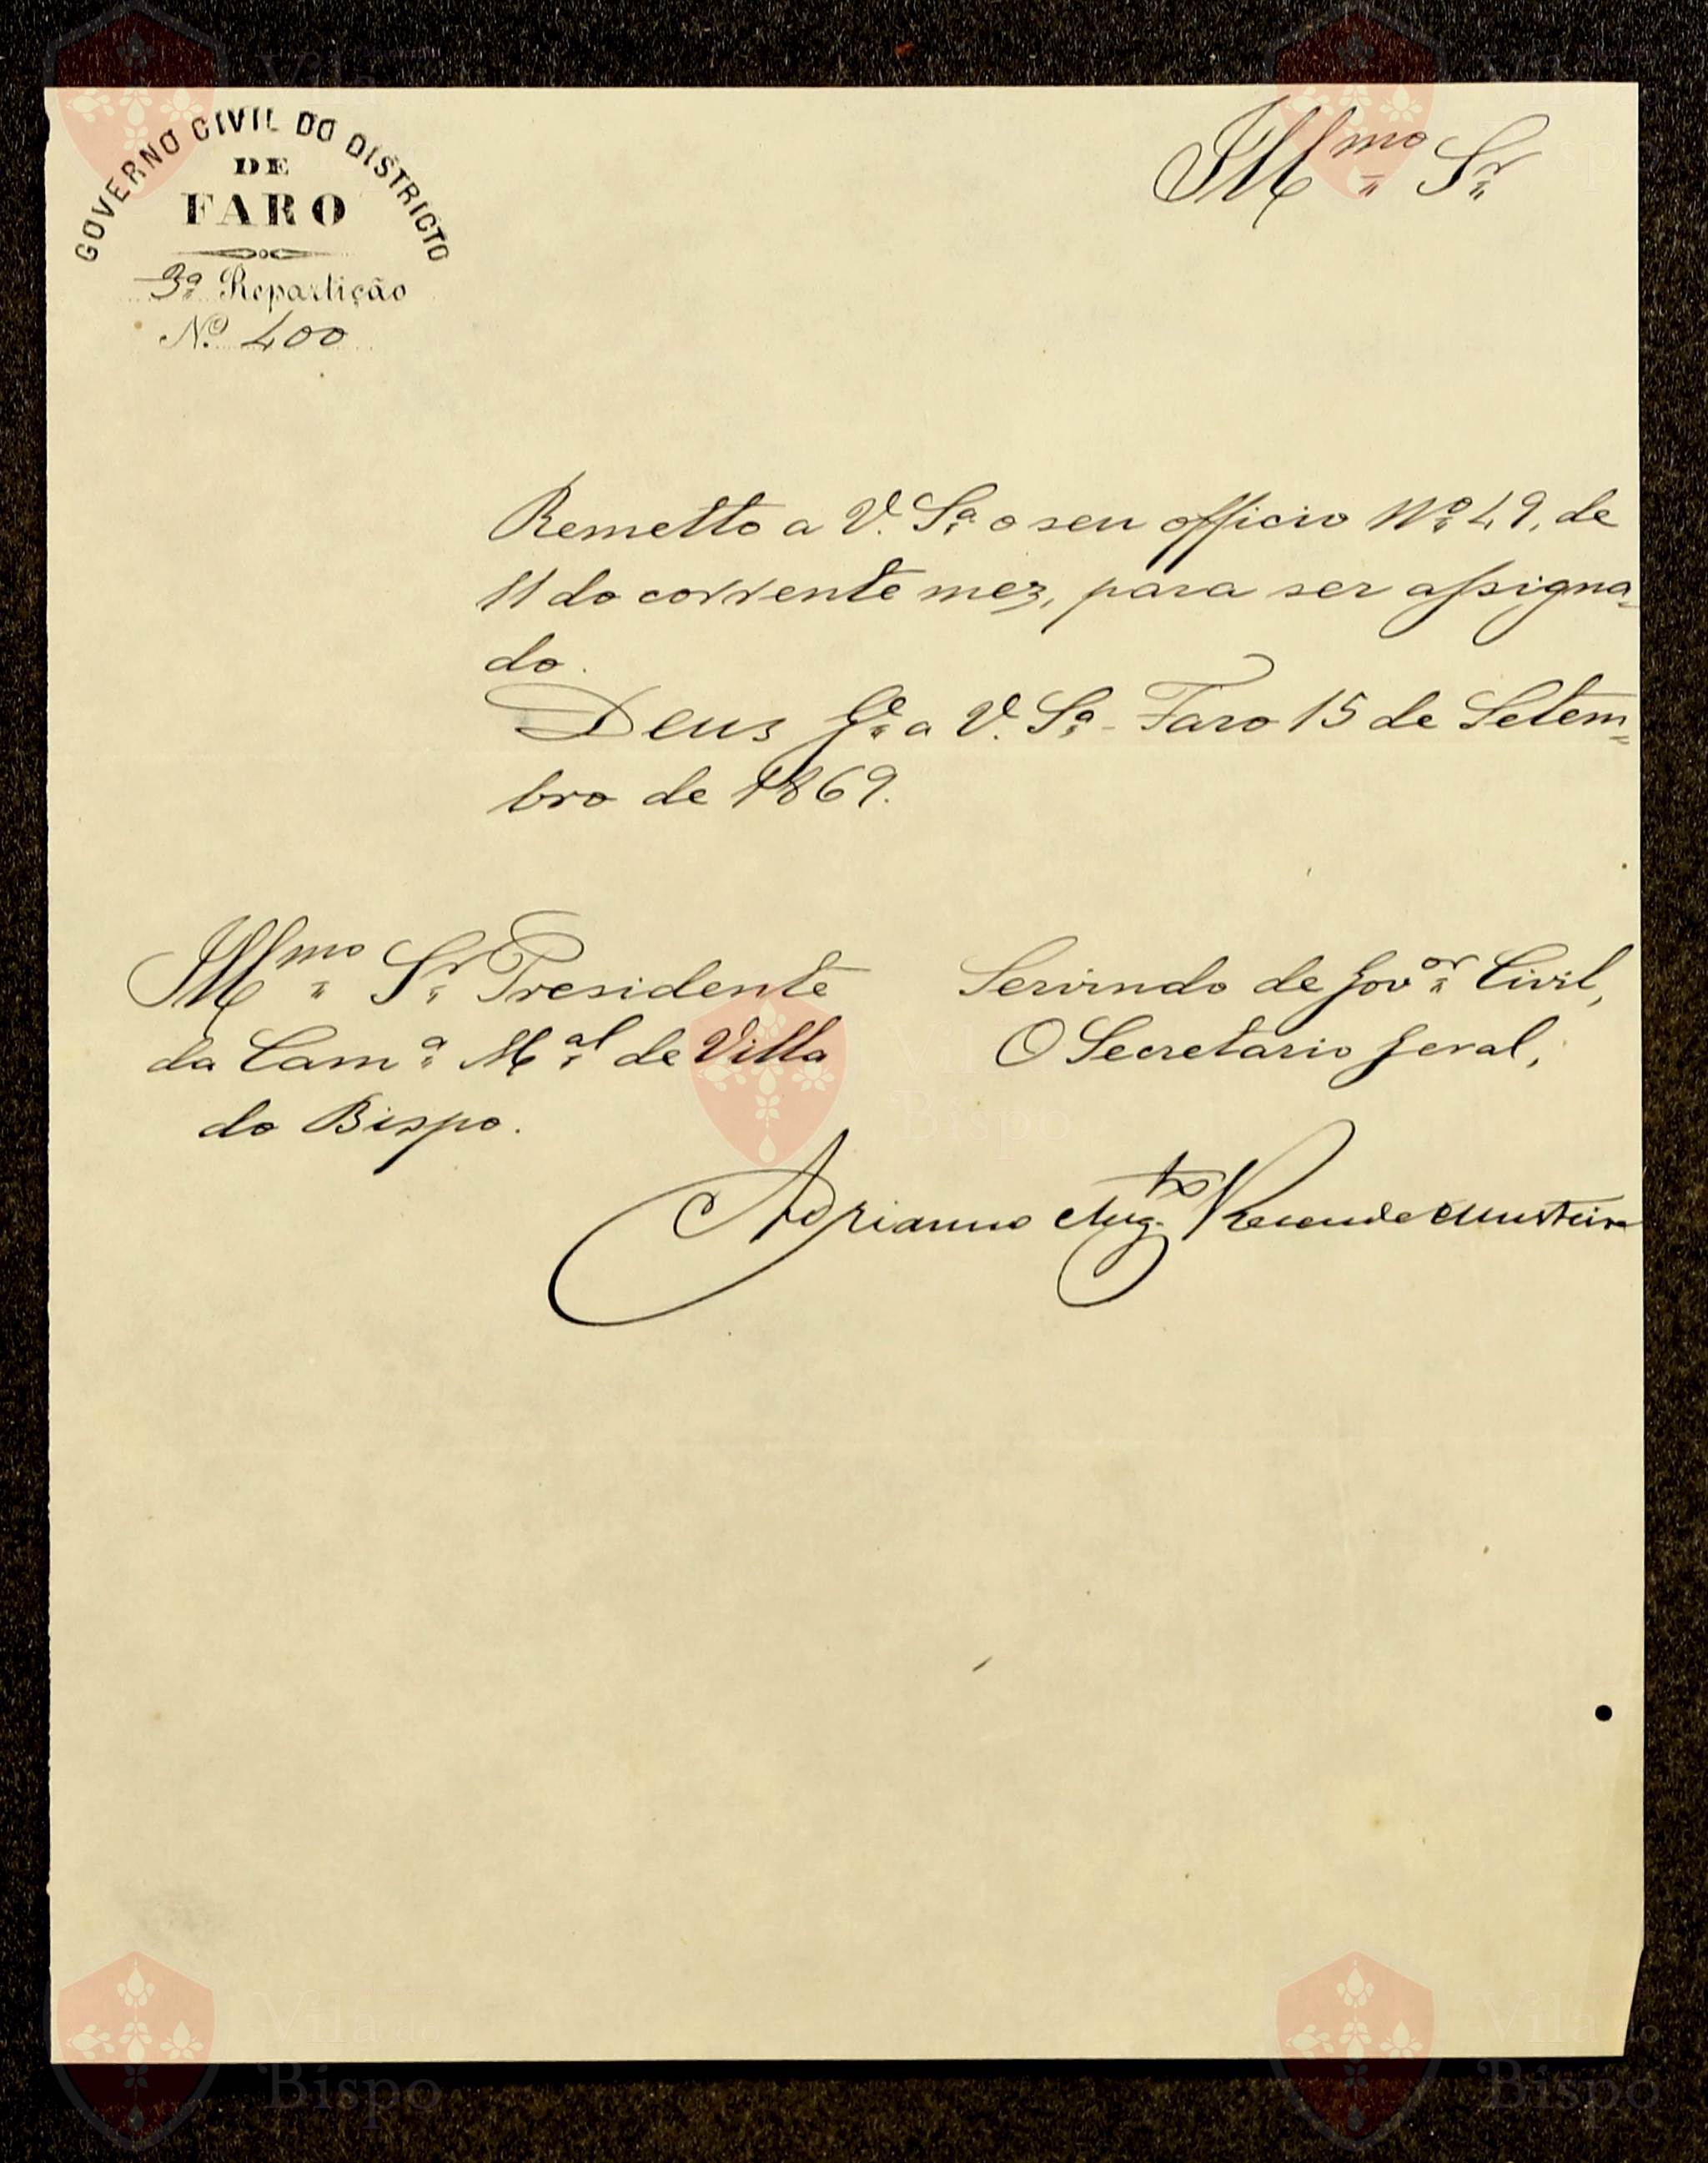 GOVERNO CIVIL DO DISTRICTO
DE
FARO
3ª Repartição
Nº 400
Illmo Sr
Remetto a V. Sª o seu officio Nº 49, de
11 do corrente mez, para ser assigna-
do.
Deus Ge a V. Sª - Faro 15 de Setem=
bro de 1869.
Illmo Sr Presidente
da Camª Mal de Villa
do Bispo.
Servindo de Govor Civil,
O Secretario geral,
Adrianno Augto Resende Monteiro
Vila do
Bispo